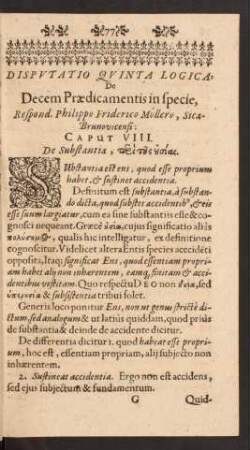 77
DISPVTATIO QVINTA LOGICA.
De
Decem Prædicamentis in specie,
Respond. Philippo Friderico Möllero, Sica-
Brunovicensi:
CAPUT VIII.
De Substantia, περὶ τῆς οὐσίας.
SUbstantia est ens, quod esse proprium
habet, & sustinet accidentia.
Definitum est substantia, à substan-
do dicta, quod substet accidentib9, & eis
esse suum largiatur, cum ea sine substantiis esse & co-
gnosci nequeant. Græcè οὐσία, cujus significatio aliàs
qualis hac intelligatur, ex definitione
cognoscitur. Videlicet altera Entis species accidẽti
opposita, Itaq; significat Ens, quod essentiam propri-
am habet alij non inhærentem, eamq; sustinet & acci-
dentibus vestitam. Quo respectu DEO non οὐσία, sed
& subsistentia tribui solet.
Generis loco ponitur Ens, non ut genus strictè di-
ctum, sed analogum & ut latius quiddam, quod priùs
de substantia & deinde de accidente dicitur.
De differentia dicitur 1. quod habeat esse propri-
um, hoc est, essentiam propriam, alij subjecto non
inhærentem.
2. Sustineat accidentia. Ergo non est accidens,
sed ejus subjectum & fundamentum.
G Quid-